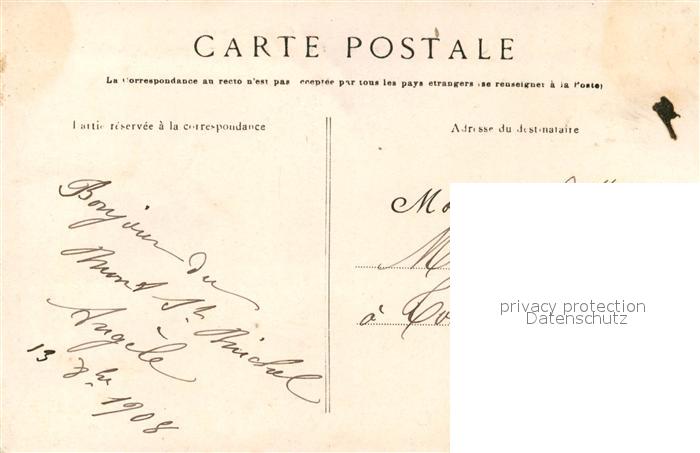 CARTE POSTALE
La Correspondance au recto n'est pas acceptée par tous les pays etrangers (se renseigner à la Poste)
Partie réservée à la correspondance
Adresse du destinataire
Bonjour du
Mont St. Michel
Angèle
13 1908
à
privacy protection
Datenschutz